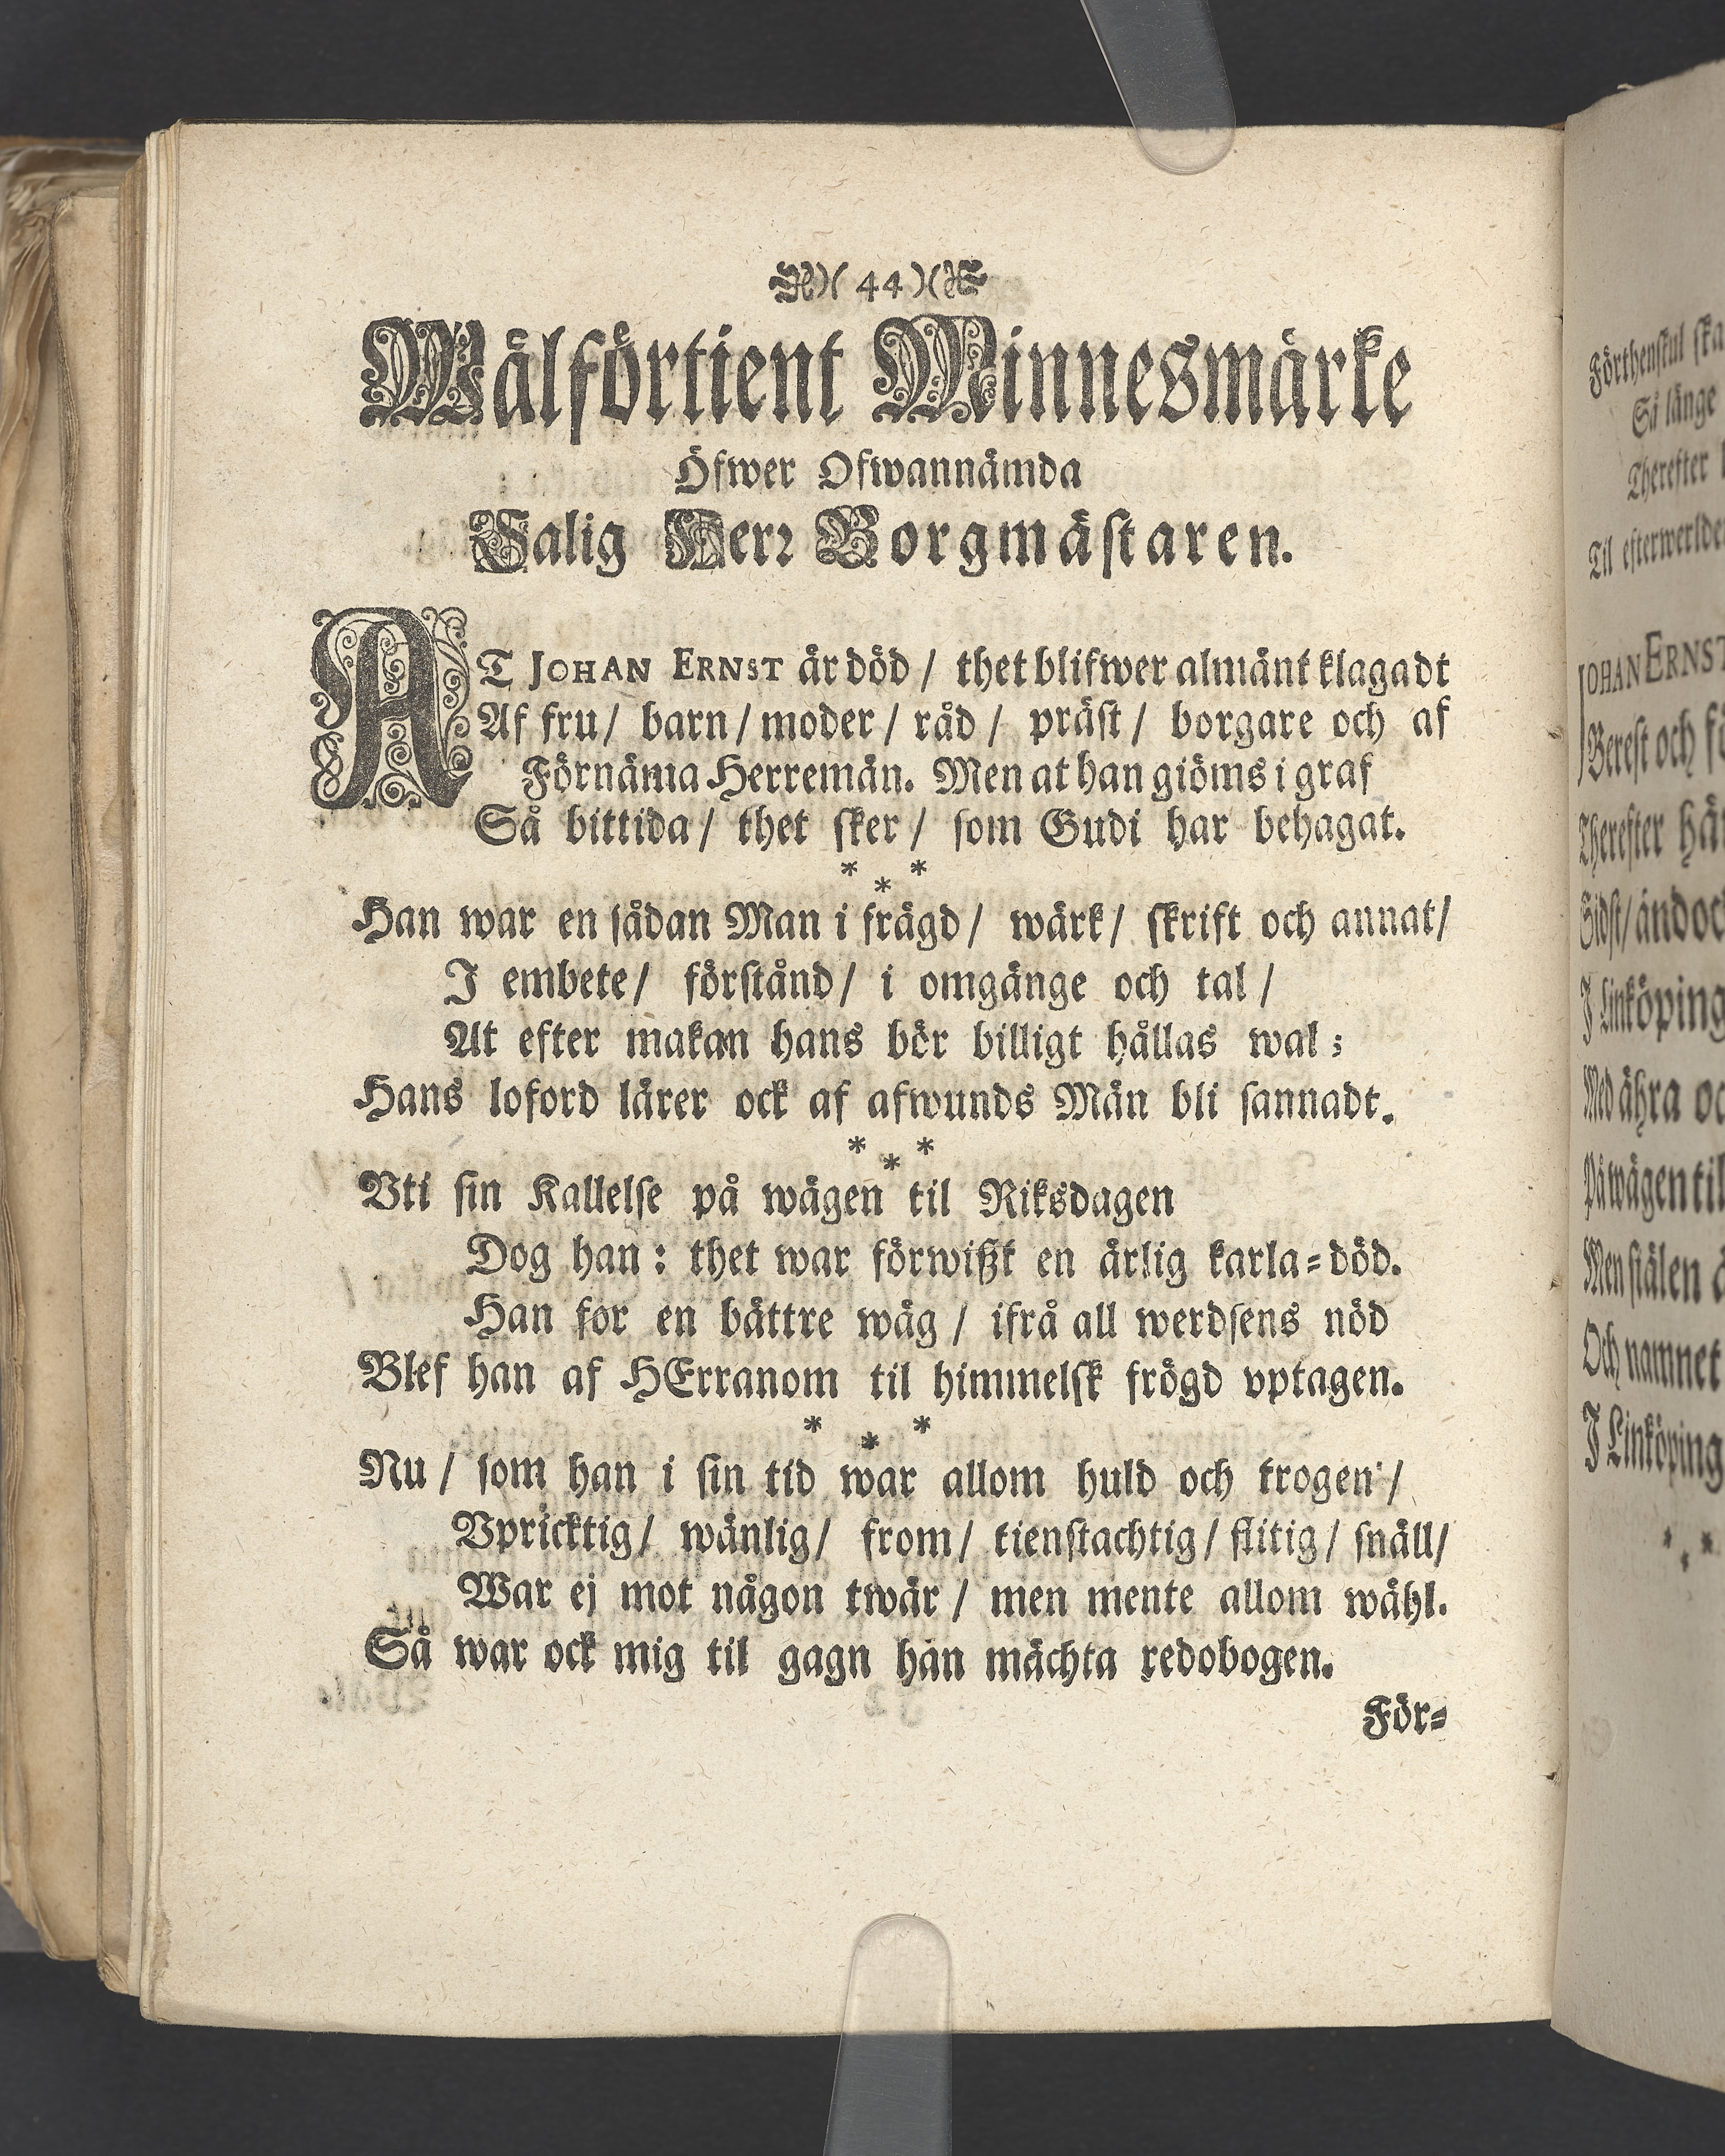 )( 44 )(
Wälförtient Minnesmärke
Öfwer Ofwannämda
Salig Herr Borgmästaren.
AT JOHAN ERNST är död / thet blifwer almänt klagadt
Af fru / barn / moder / råd / präst / borgare och af
Förnäma Herremän. Men at han giöms i graf
Så bittida / thet sker / som Gudi har behagat.
* * *
Han war en sådan Man i frägd / wärk / skrift och annat /
I embete / förstånd / i omgänge och tal /
At efter makan hans bör billigt hållas wal ;
Hans loford lärer ock af afwunds Män bli sannadt.
* * *
Vti sin Kallelse på wägen til Riksdagen
Dog han : thet war förwißt en ärlig karla-död.
Han for en bättre wäg / ifrå all werdsens nöd
Blef han af HErranom til himmelsk frögd vptagen.
* * *
Nu / som han i sin tid war allom huld och trogen /
Vpricktig / wänlig / from / tienstachtig / flitig / snäll /
War ej mot någon twär / men mente allom wähl.
Så war ock mig til gagn han mächta redobogen.
För-
Förthenskul ska
Så länge
Therefter
Til efterwerlden
JOHAN ERNST
Berest och
Therefter
Sidst / ändoc
I Linköping
Med ähra oc
På wägen til
Men siälen
Och namnet
I Linköping
* * *